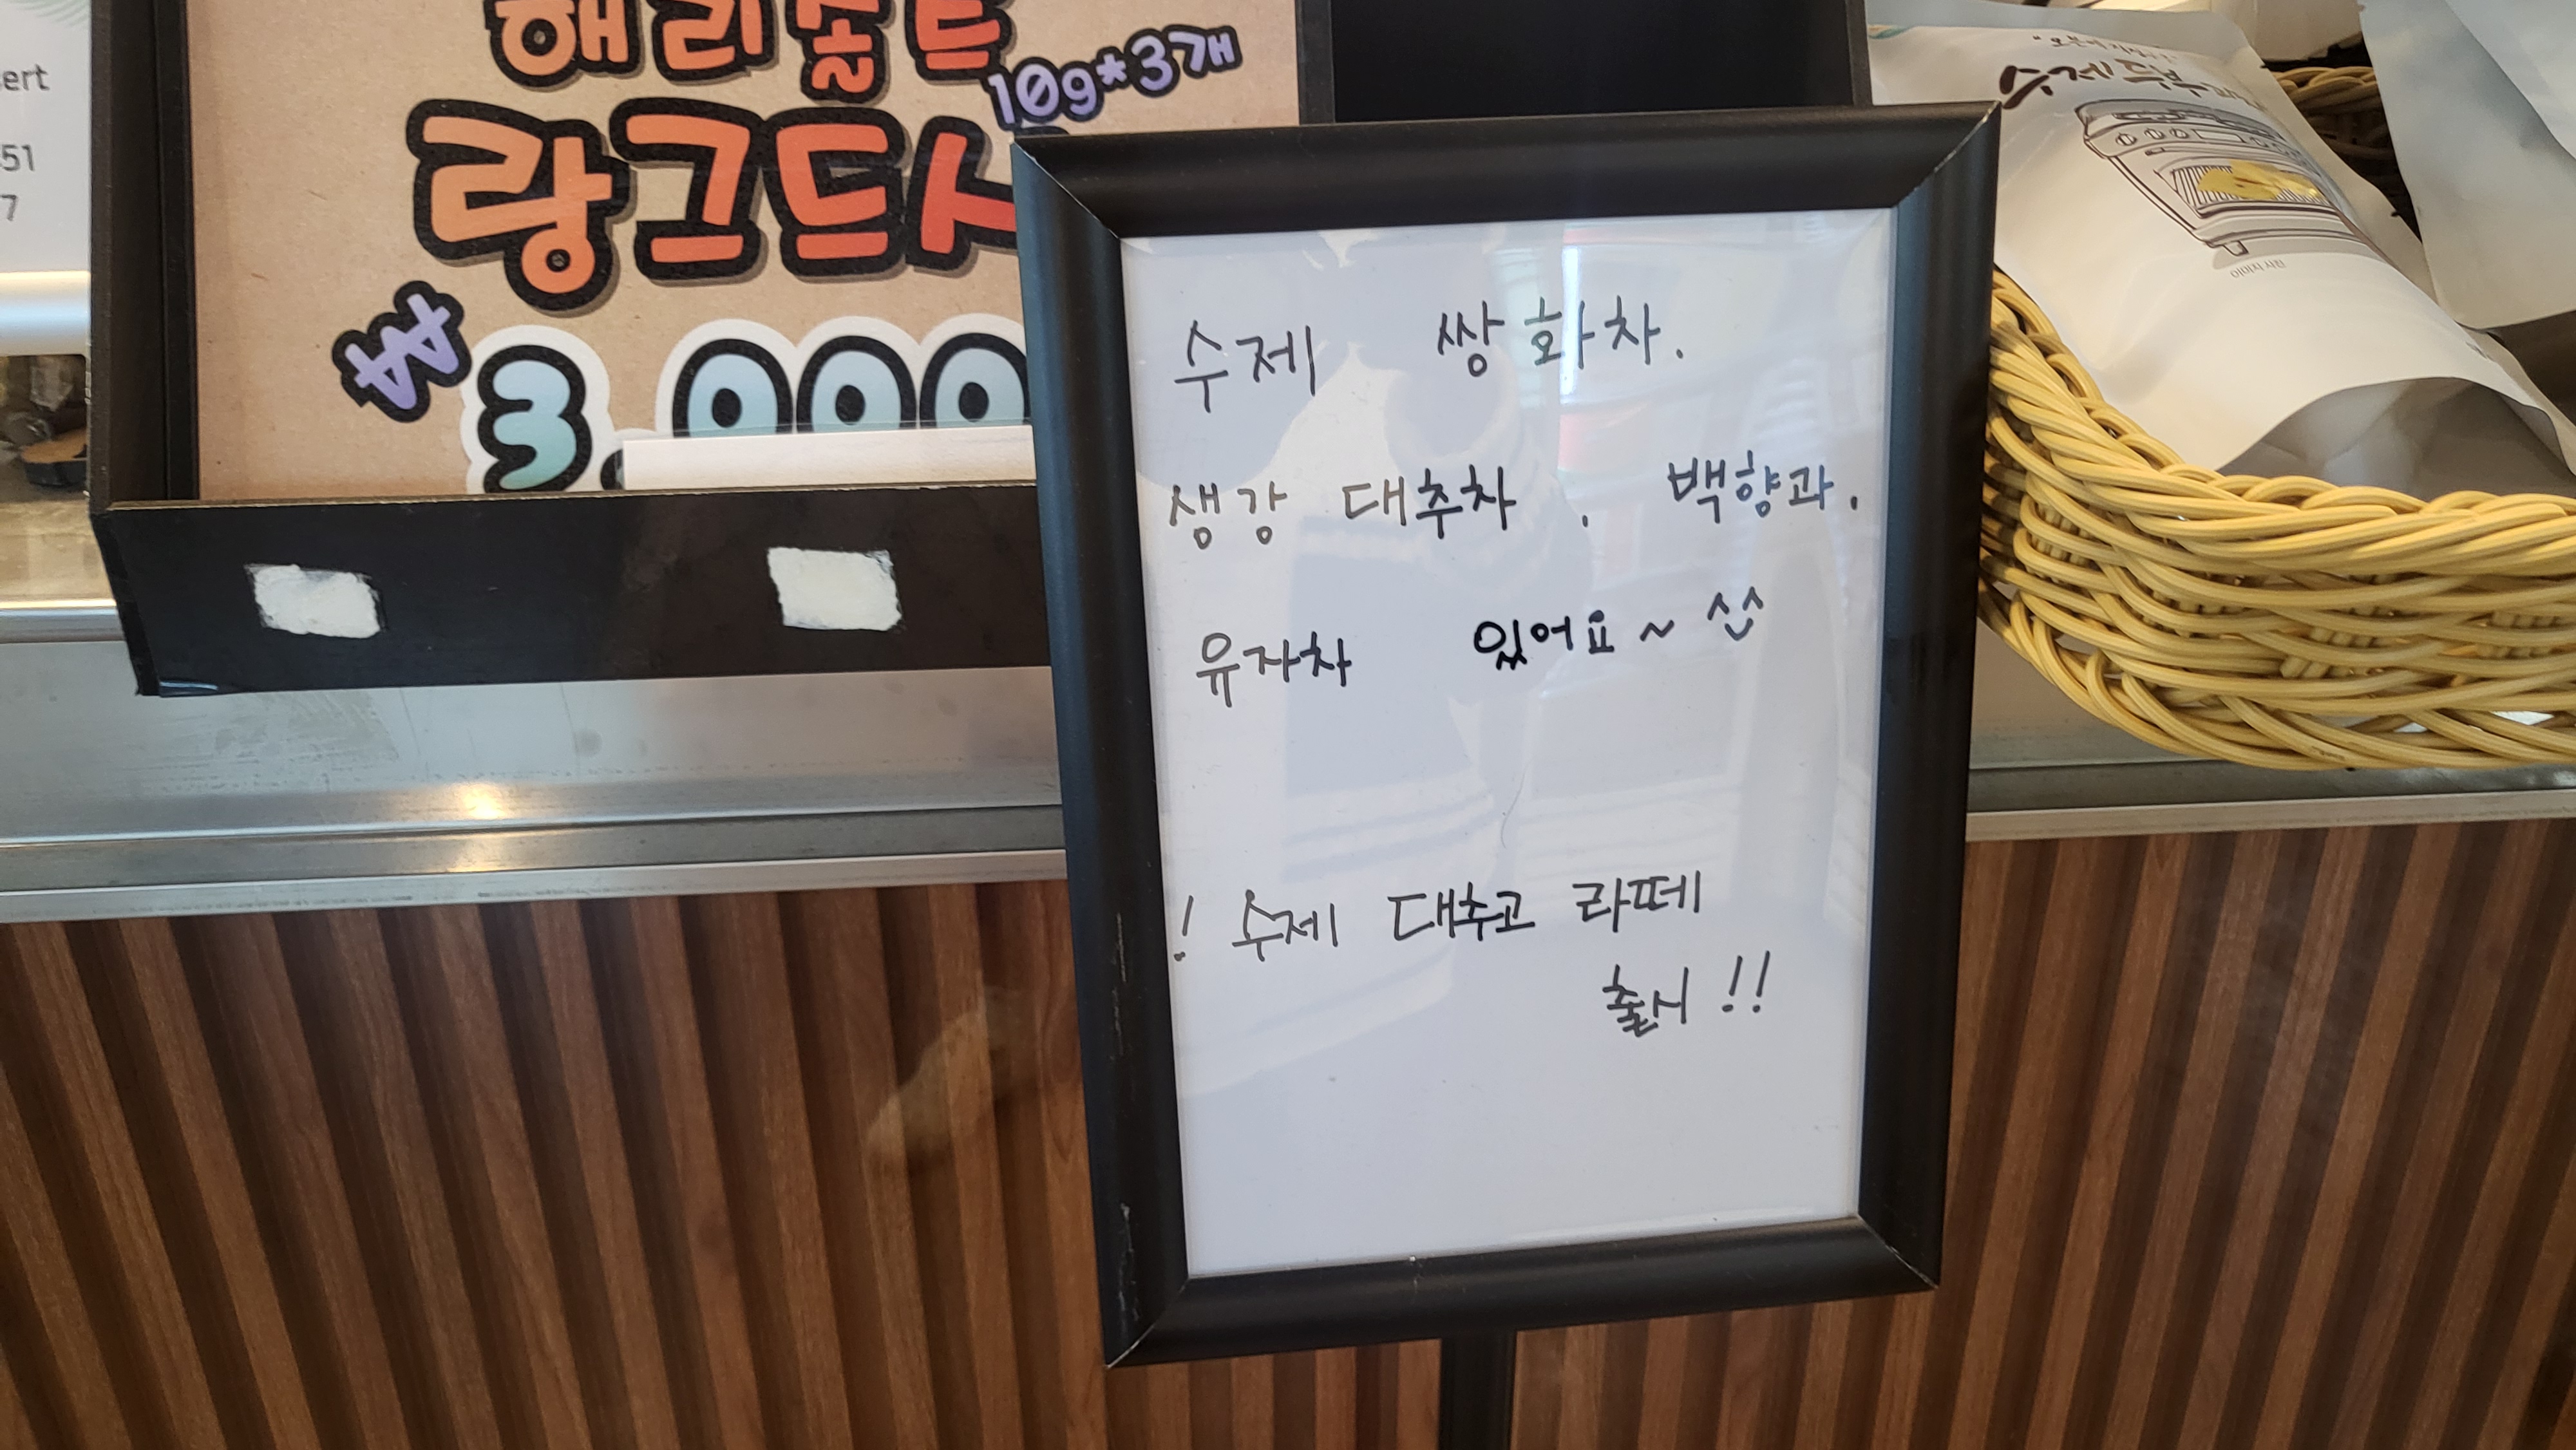 ert
51
7
해리솔트
10g*3개
랑그드샤
3,000
수제 쌍화차.
생강 대추차 . 백향과.
유자차 있어요~ ^^
! 수제 대추고 라떼
출시!!
수제두부
이미지 사진